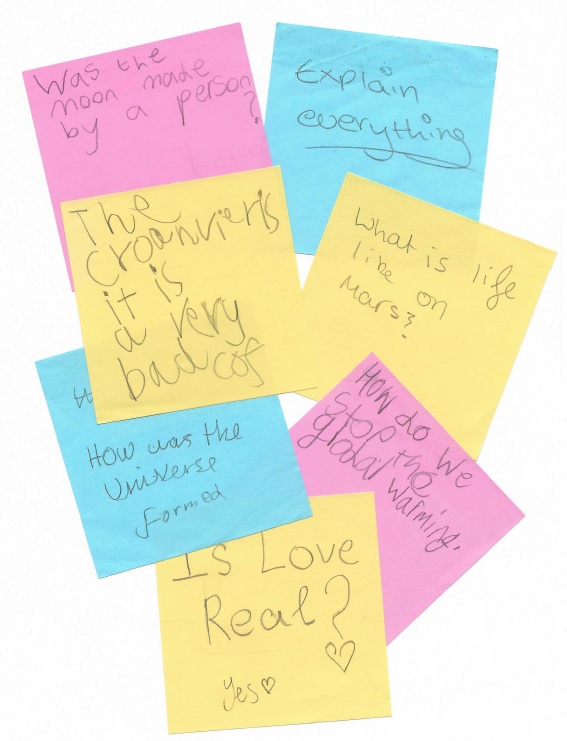 Was the
moon made
by a person
?
Explain
everything
The
cronvieris
it is
a very
bad cof
What is life
like on
Mars?
How do we
stop the
gloabl warming.
How was the
Universe
formed
Is Love
Real?
yes